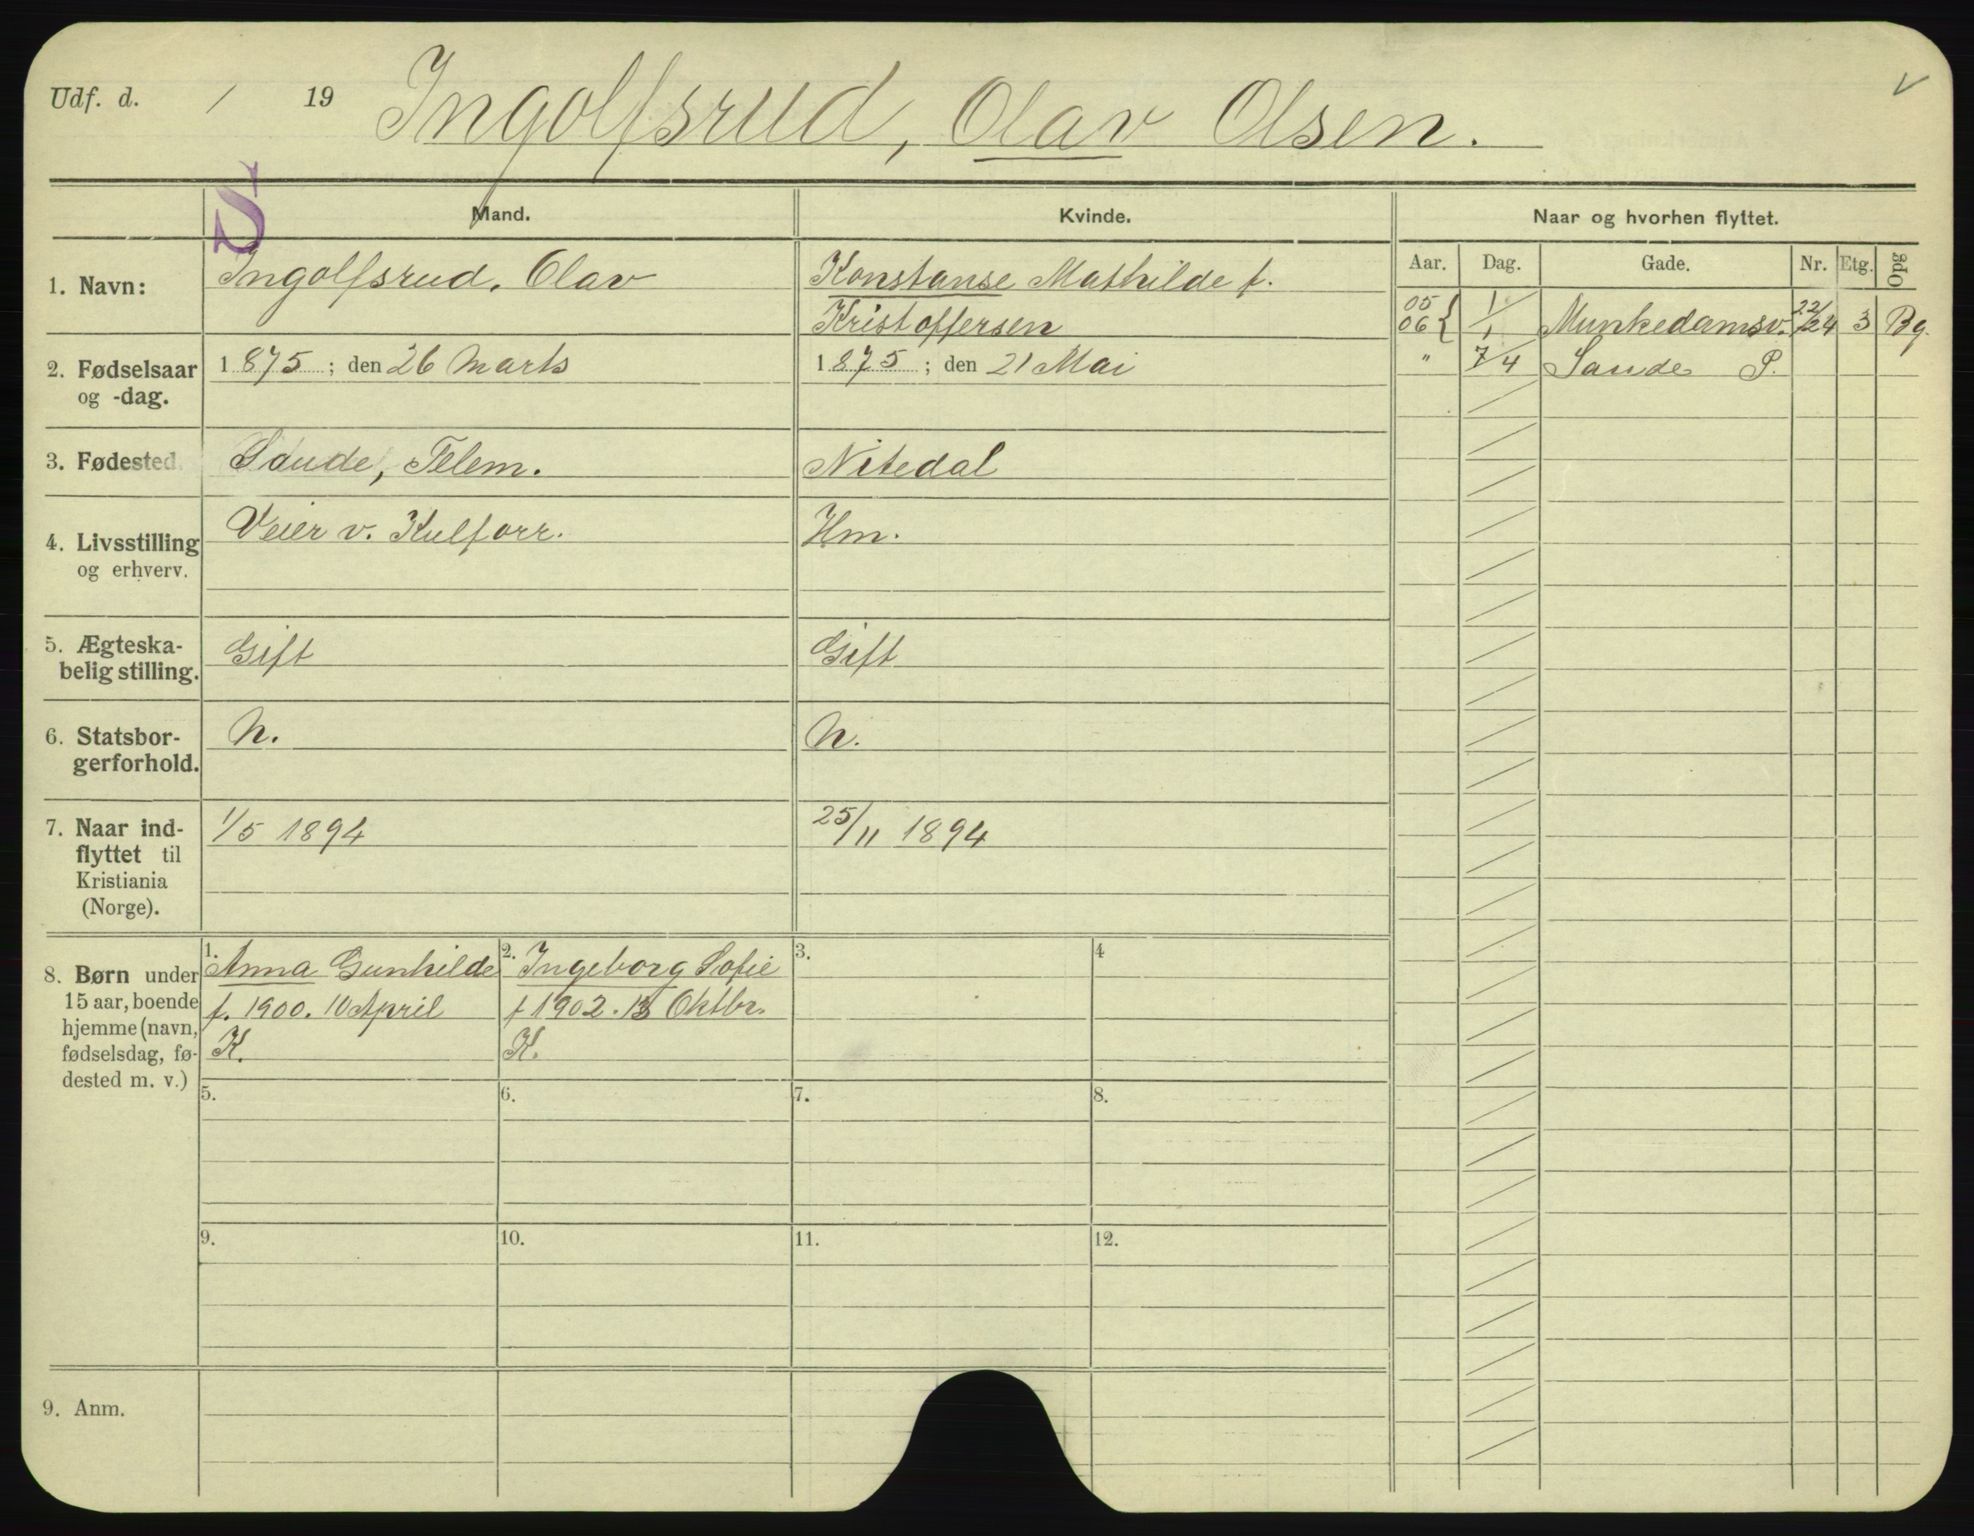 Udf. d. / 19 Ingolfsrud, Olav Olsen.
Mand. Kvinde. Naar og hvorhen flyttet.
Aar. Dag. Gade. Nr. Etg. Opg
1. Navn: Ingolfsrud, Olav Konstanse Mathilde f.
Kristoffersen
05
06 { 1/1 Munkedamsv. 22/24 3 Bg.
" 7/4 Saude P.
2. Fødselsaar
og -dag.
1875; den 26 Marts 1875; den 21 Mai
3. Fødested. Saude, Telem. Nitedal
4. Livsstilling
og erhverv.
Veier v. Kulforr. Hm.
5. Ægteska-
belig stilling.
Gift Gift
6. Statsbor-
gerforhold.
N. N.
7. Naar ind-
flyttet til
Kristiania
(Norge).
1/5 1894 25/11 1894
8. Børn under
15 aar, boende
hjemme (navn,
fødselsdag, fø-
dested m. v.)
1. Anna Gunhilde
f. 1900. 10 April
K.
2. Ingeborg Sofie
f 1902. 13 Oktbr.
K.
3.
4
5.
6.
7.
8.
9.
10.
11.
12.
9. Anm.